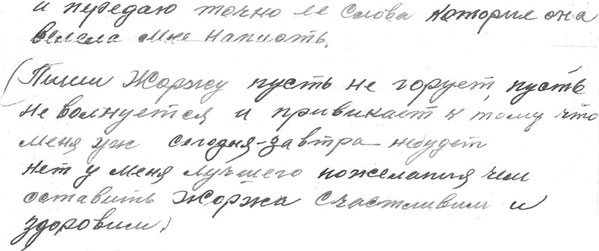 и передаю точно ее слова которие она
велела мне написать.
(Пиши Жоржу пусть не горует, пусть
не волнуется и привикает к тому что
меня уж сегодня-завтра небудет
нет у меня лучшего пожелания чем
оставить Жоржа счастливим и
здоровим)